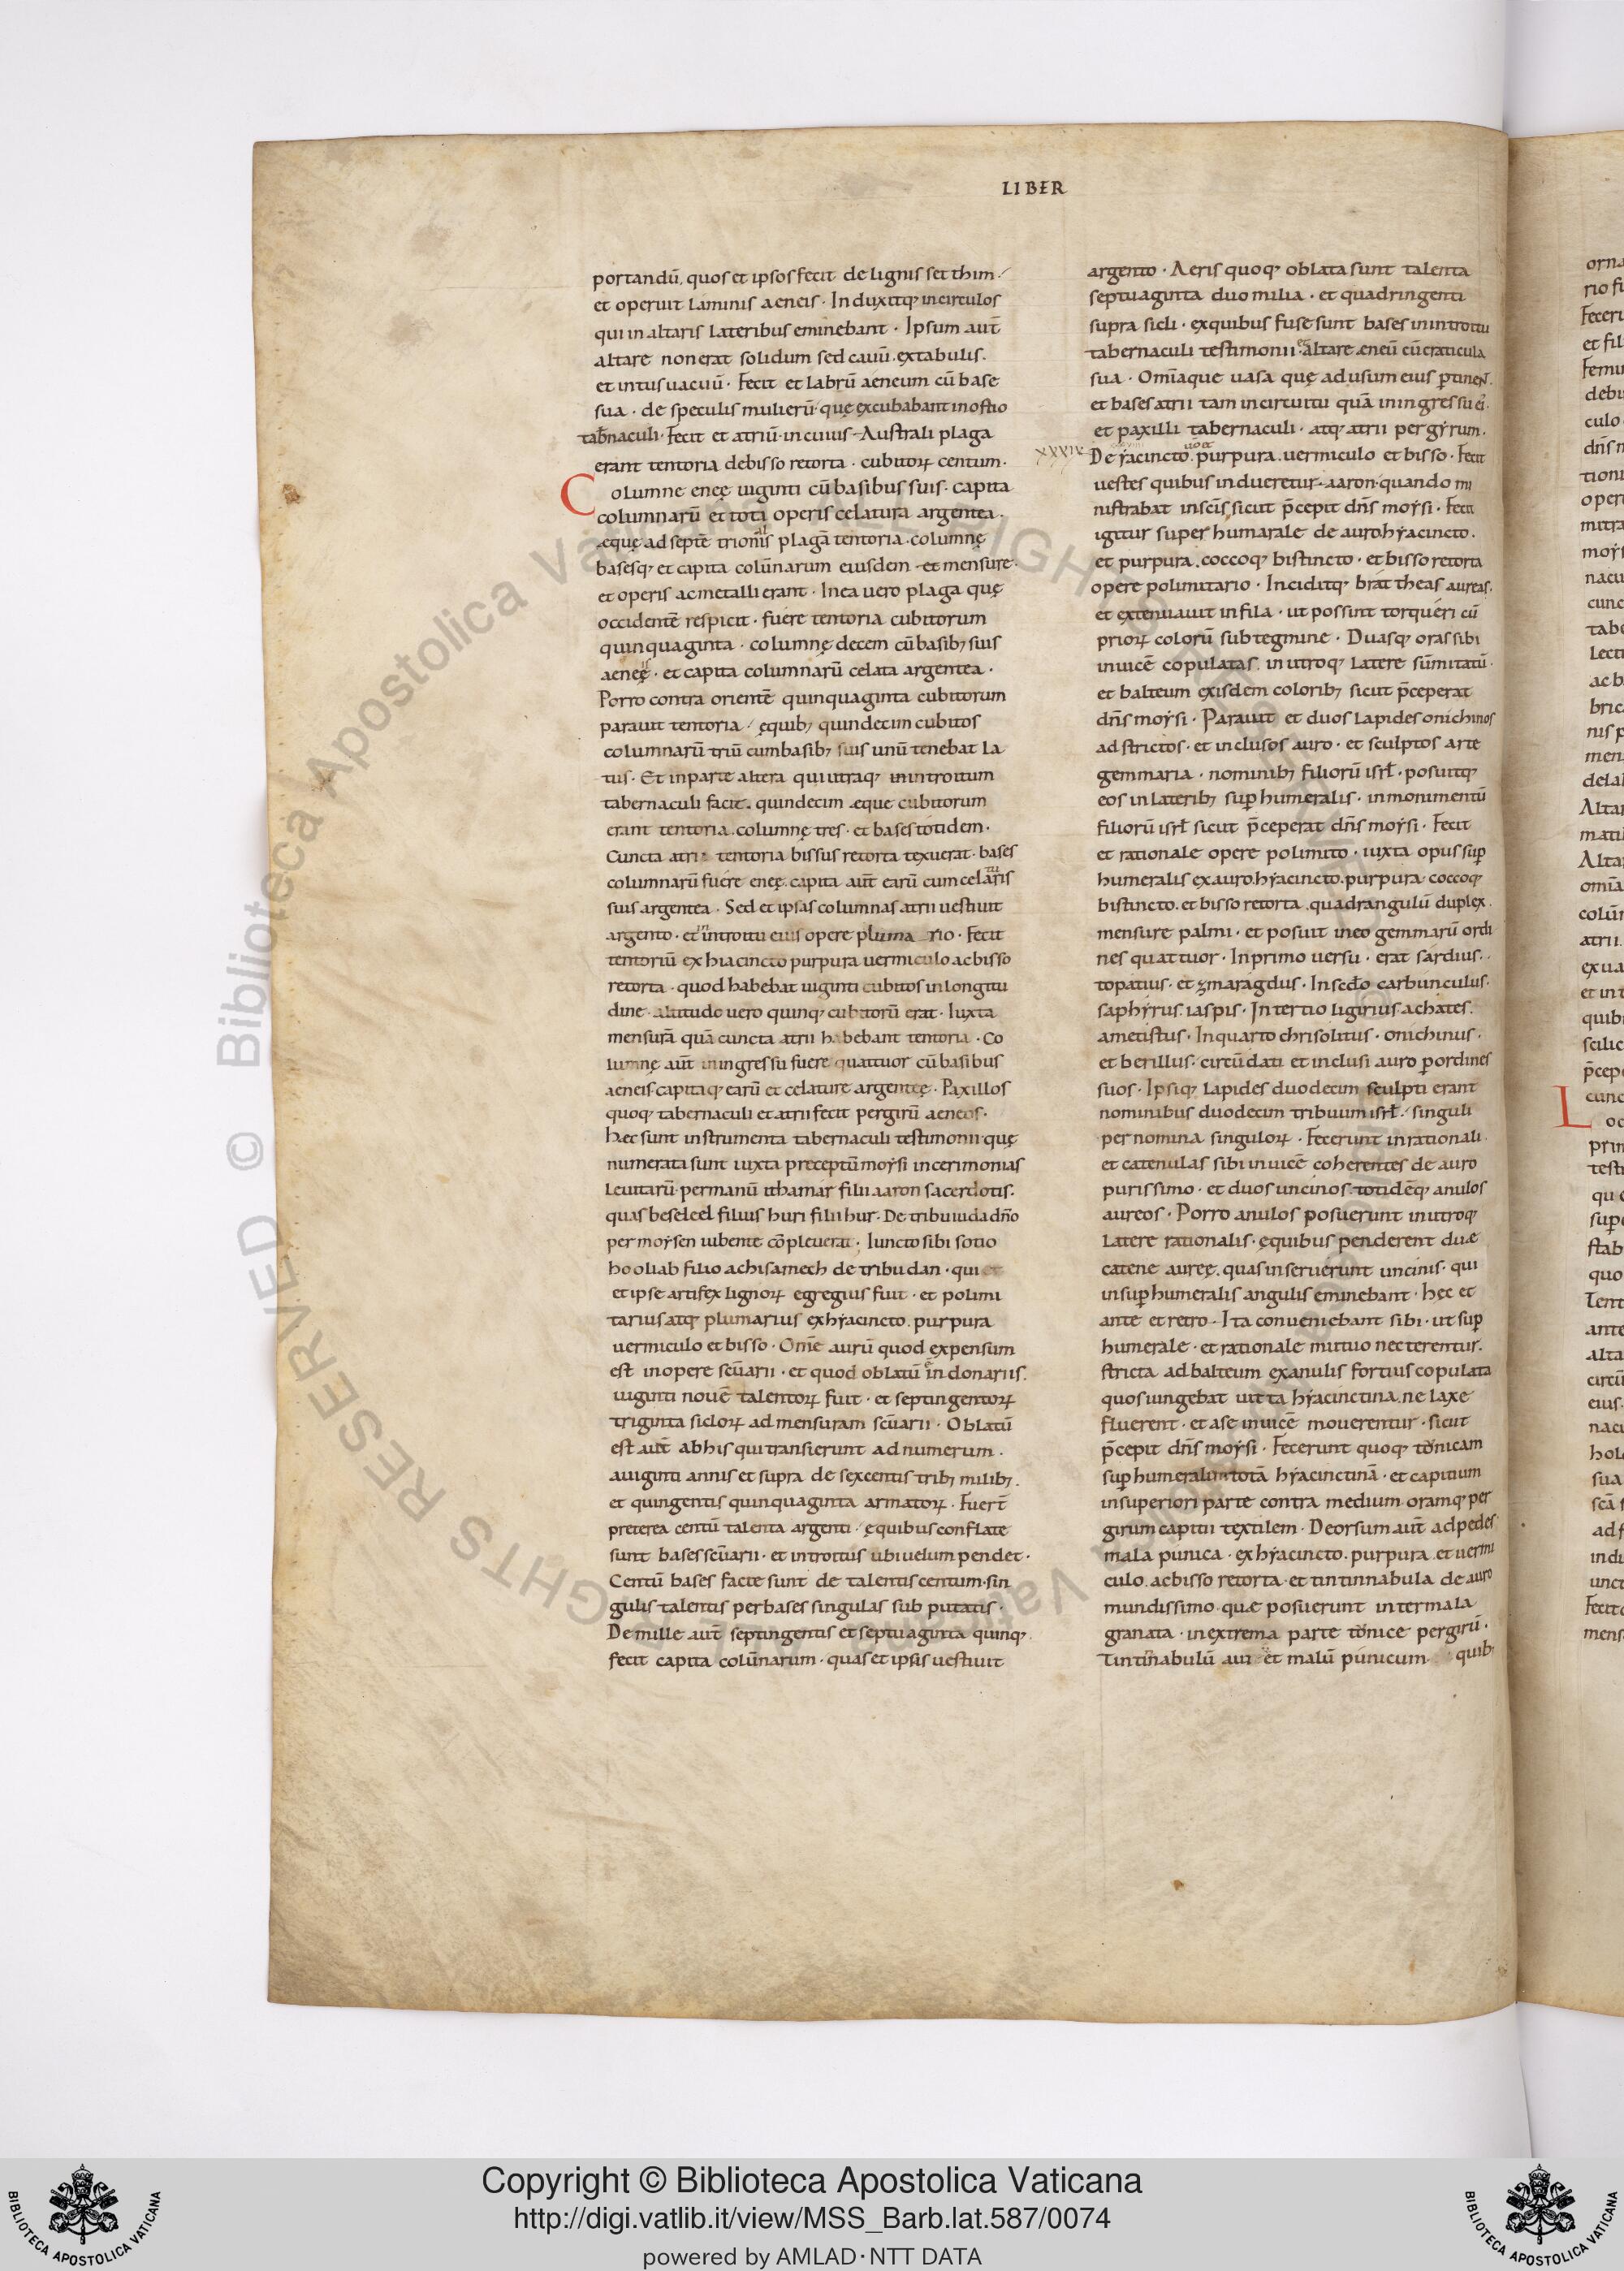 LIBER
portandū, quos et ipsos fecit de lignis setthim·
et operuit laminis aeneis · Induxitq; in circulos
qui in altaris lateribus eminebant · Ipsum aut̄
altare non erat solidum sed cauū · ex tabulis ·
et intus uacuū · Fecit et labrū aeneum cū base
sua · de speculis mulierū · quę excubabant in ostio
tab̄naculi · Fecit et atriū · in cuius Australi plaga
erant tentoria de bisso retorta · cubitoꝝ centum ·
Columne eneę uiginti cū basibus suis · capita
columnarū et toti operis celatura argentea ·
æque ad septē trionis plagā tentoria · columnę
basesq; et capita colūnarum eiusdem et mensure ·
et operis ac metalli erant · In ea uero plaga quę
occidentē respicit · fuere tentoria cubitorum
quinquaginta · columnę decem cū basib; suis
aeneę · et capita columnarū celata argentea ·
Porro contra orientē quinquaginta cubitorum
parauit tentoria · ę quib; quindecim cubitos
columnarū triū cum basib; suis unū tenebat la
tus · Et in parte altera qui utraq; in introitum
tabernaculi facit · quindecim æque cubitorum
erant tentoria · columnę tres · et bases totidem ·
Cuncta atrii tentoria bissus retorta texuerat · bases
columnarū fuere eneę · capita aut̄ earū cum celaturis
suis argentea · Sed et ipsas columnas atrii uestiuit
argento · et in introitu eius opere plumario · Fecit
tentoriū ex hiacincto purpura uermiculo ac bisso
retorta · quod habebat uiginti cubitos in longitu
dine · altitudo uero quinq; cubitorū erat · Iuxta
mensurā quā cuncta atrii habebant tentoria · Co
lumnę aut̄ in ingressu fuere quattuor cū basibus
aeneis · capitaq; earū et celature argenteę · Paxillos
quoq; tabernaculi et atrii fecit per girū aeneos ·
Hec sunt instrumenta tabernaculi testimonii · quę
numerata sunt iuxta preceptū moẏsi in cerimonias
leuitarū · per manū ithamar filii aaron sacerdotis ·
quas beseleel filius huri filii hur · De tribu iuda dn̄o
per moẏsen iubente cōpleuerat · Iuncto sibi sotio
hooliab filio achisamech de tribu dan · qui et
et ipse artifex lignoꝝ egregius fuit · et polimi
tarius atq; plumarius ex hẏacincto · purpura
uermiculo et bisso · Omē aurū quod expensum
est in opere sc̄uarii · et quod oblatū ē in donariis ·
uiginti nouē talentoꝝ fuit · et septingentoꝝ
triginta sicloꝝ ad mensuram sc̄uarii · Oblatū
est aut̄ ab his qui transierunt ad numerum ·
a uiginti annis et supra de sexcentis trib; milib; ·
et quingentis quinquaginta armatoꝝ · Fuert̄
preterea centū talenta argenti · ę quibus conflate
sunt bases sc̄uarii · et introitus ubi uelum pendet ·
Centū bases facte sunt de talentis centum · sin
gulis talentis per bases singulas sub putatis ·
De mille aut̄ septingentis et septuaginta quinq; ·
fecit capita colūnarum · quas et ipsis uestiuit
argento · Aeris quoq; oblata sunt talenta
septuaginta duo milia · et quadringenti
supra sicli · ex quibus fuse sunt bases in introitu
tabernaculi testimonii · et altare eneū cū craticula
sua · Omīaque uasa quę ad usum eius ꝑtinen̄t ·
et bases atrii tam in circuitu quā in ingressu ei' ·
et paxilli tabernaculi · atq; atrii per gẏrum ·
XXXIX
De ẏacincto uero et purpura · uermiculo et bisso · Fecit
uestes quibus indueretur aaron · quando mi
nistrabat in sc̄is sicut p̄cepit dn̄s moẏsi · Fecit
igitur super humarale de auro · hẏacincto ·
et purpura · coccoq; bistincto · et bisso retorta
opere polimitario · Inciditq; brat theas aureas ·
et extenuauit in fila · ut possint torqueri cū
prioꝝ colorū subtegmine · Duasq; oras sibi
inuicē copulatas in utroq; latere sūmitatū ·
et balteum ex isdem colorib; sicut p̄ceperat
dn̄s moẏsi · Parauit et duos lapides onichinos
ad strictos · et inclusos auro · et sculptos arte
gemmaria · nominib; filiorū isrl̄ · posuitq;
eos in laterib; suꝑ humeralis · in monimentū
filiorū isrl̄ sicut p̄ceperat dn̄s moẏsi · Fecit
et rationale opere polimito · iuxta opus suꝑ
humeralis ex auro · hẏacincto · purpura coccoq;
bistincto · et bisso retorta · quadrangulū duplex ·
mensure palmi · et posuit in eo gemmarū ordi
nes quattuor · In primo uersu · erat sardius ·
topatius · et zmaragdus · In sedō carbunculus ·
saphẏrus · iaspis · In tertio ligirius · achates ·
ametistus · In quarto chrisolitus · onichinus ·
et berillus · circūdati et inclusi auro ꝑ ordines
suos · Ipsiq; lapides duodecim sculpti erant
nominibus duodecim tribuum isrl̄ · singuli
per nomina singuloꝝ · Fecerunt in rationali
et catenulas sibi inuicē coherentes de auro
purissimo · et duos uncinos · totidēq; anulos
aureos · Porro anulos posuerunt in utroq;
latere rationalis · ę quibus penderent due
catene aureę · quas inseruerunt uncinis · qui
in suꝑ humeralis angulis eminebant · hec et
ante et retro · Ita conueniebant sibi · ut suꝑ
humerale · et rationale mutuo necterentur ·
stricta ad balteum ex anulis fortius copulata
quos iungebat uitta hẏacinctina · ne laxe
fluerent · et a se inuicē mouerentur · sicut
p̄cepit dn̄s moẏsi · Fecerunt quoq; tonicam
suꝑ humeralem totā hẏacinctinā · et capitium
in superiori parte contra medium · oramq; per
girum capitii textilem · Deorsum aut̄ ad pedes
mala punica · ex hẏacincto · purpura · et uermi
culo · ac bisso retorta · et tintinnabula de auro
mundissimo · quæ posuerunt inter mala
granata · in extrema parte tonice per girū ·
Tintinnabulū aui et malū punicum · quib;